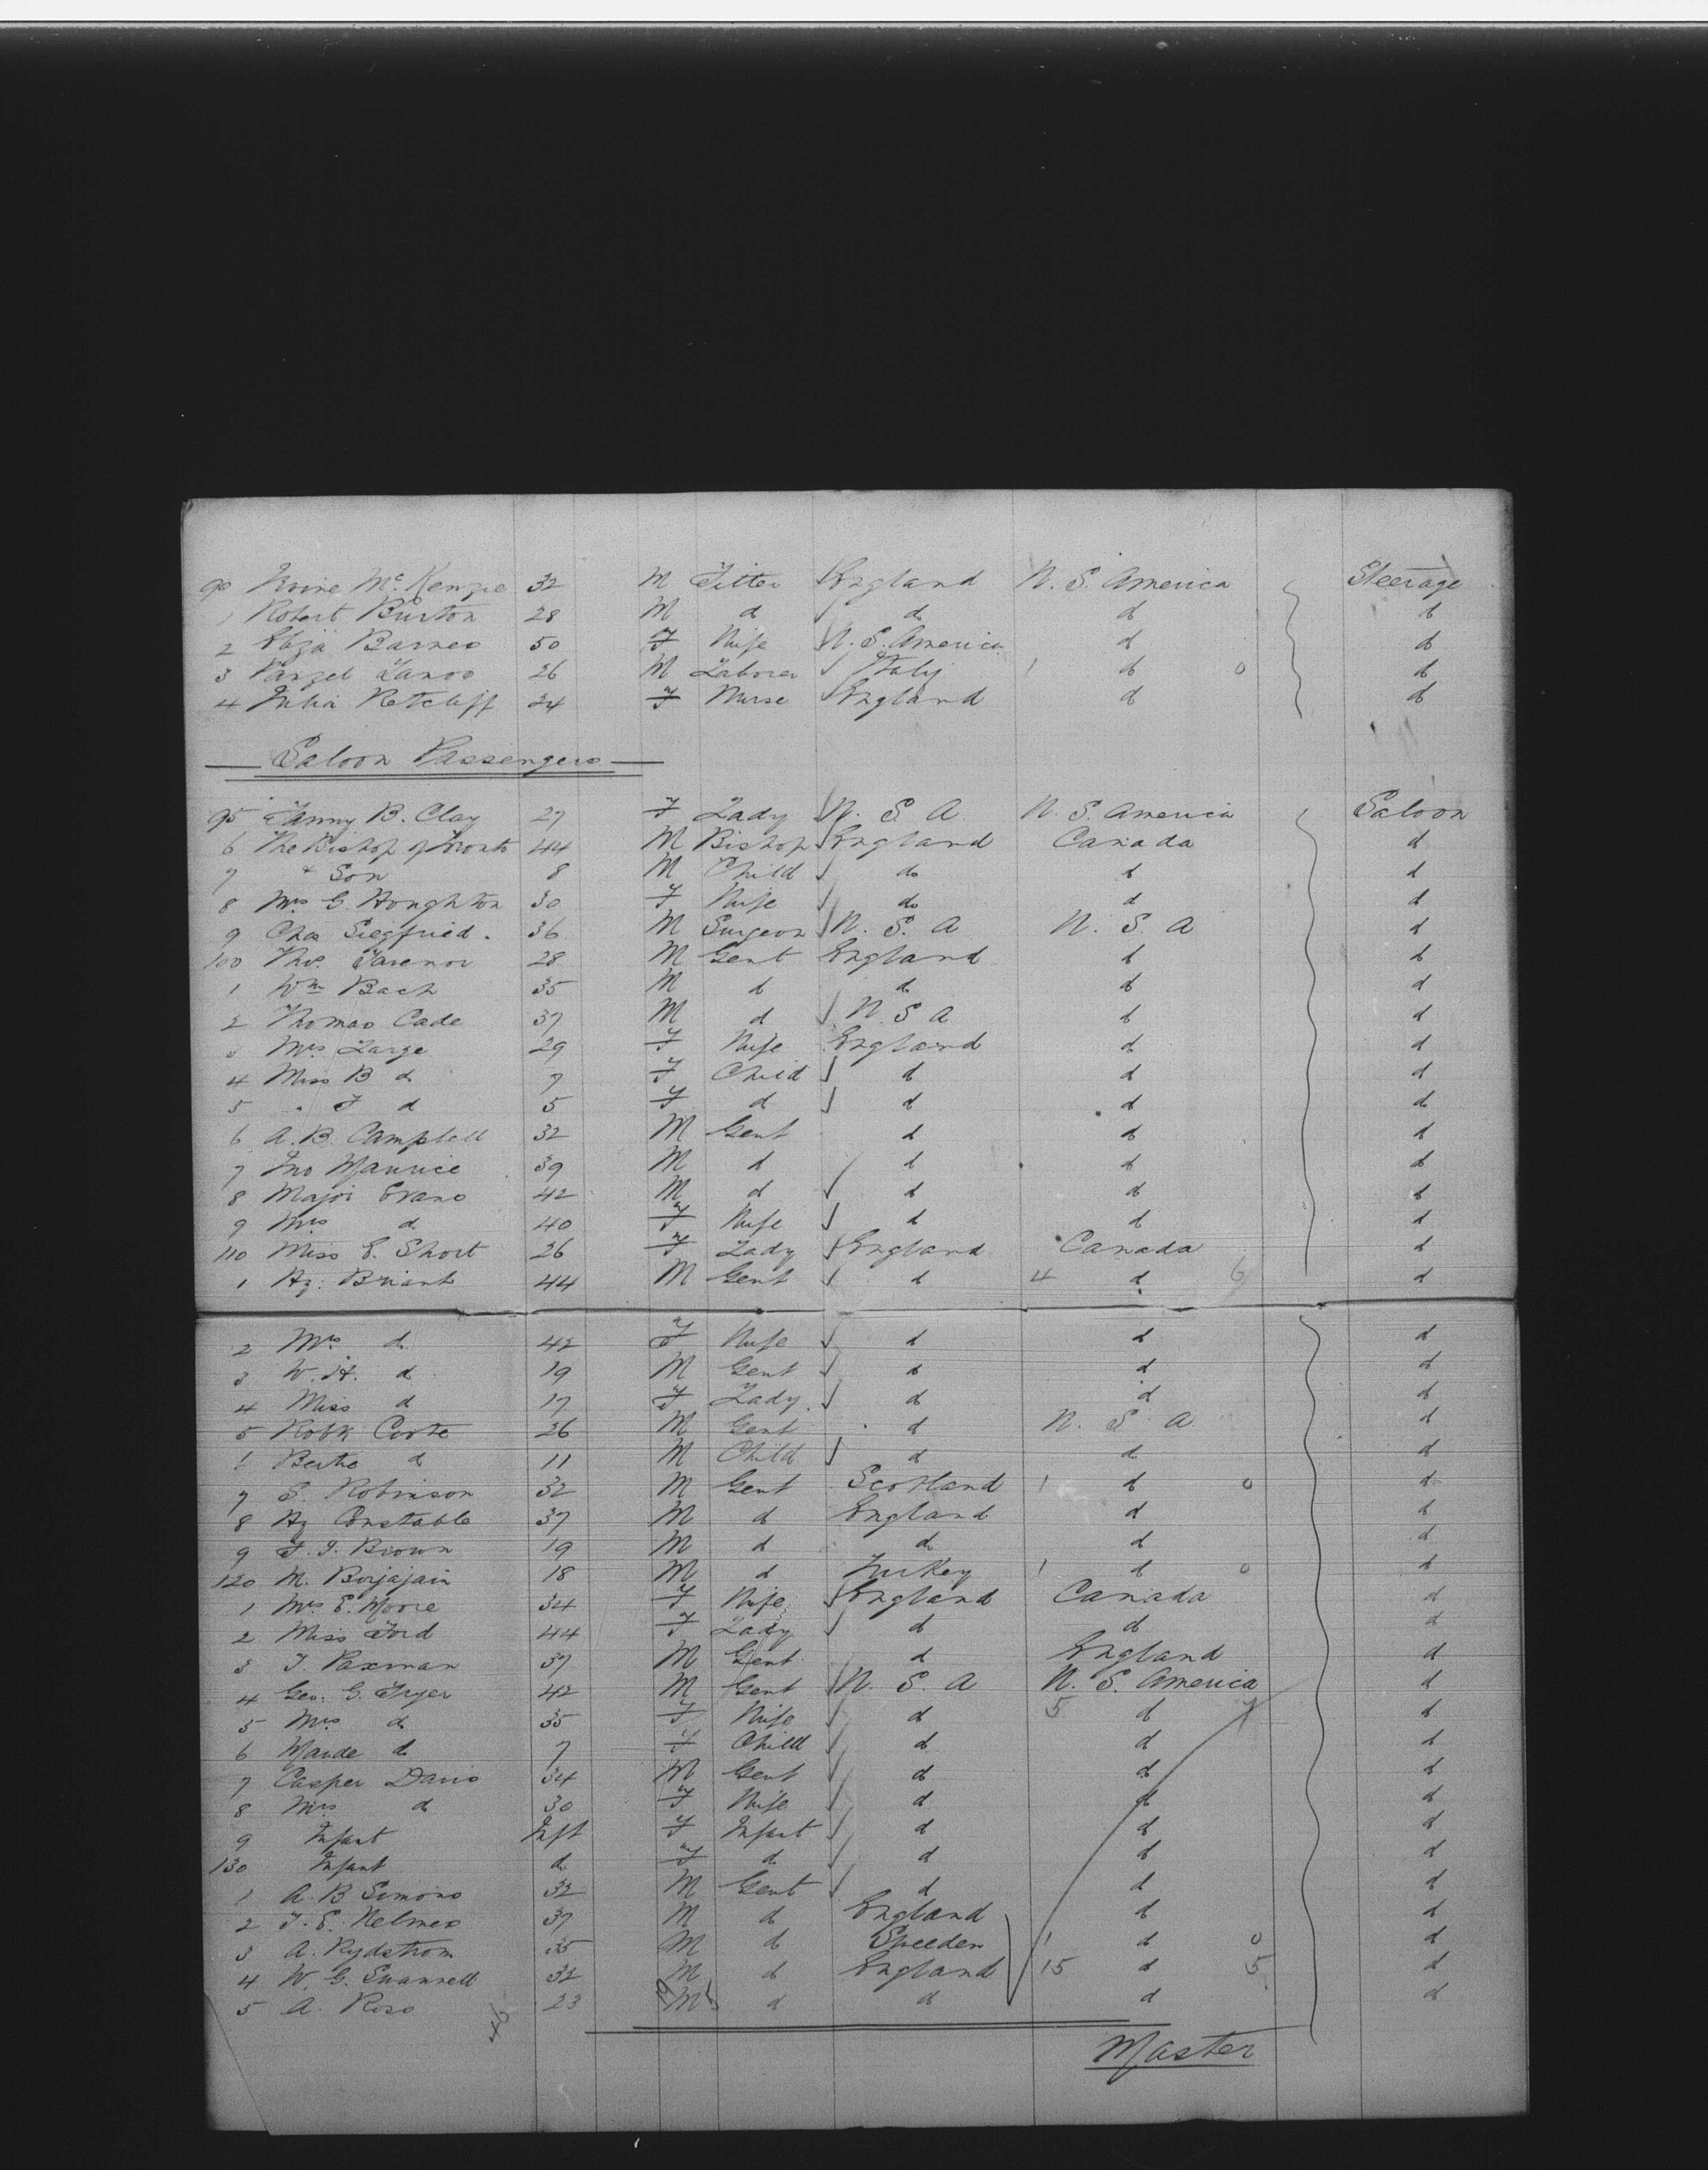 90 McKenzie 32 M Fitter England U. S. America Steerage
1 Robert Burton 28 M d d d d
2 Eliza Barnes 50 F Wife U. S. America d d
3 26 M Laborer Italy 1 d 0 d
4 Julia Retcliff 24 F Nurse England d d
Saloon Passengers
95 Fanny B. Clay 27 F Lady U. S. A U. S. America Saloon
6 The Bishop of Toronto 44 M Bishop England Canada d
7 " Son 8 M Child do d d
8 Mrs G. Houghton 30 F Wife do d d
9 Chas Siegfried. 36 M Surgeon U. S. A U. S. A d
100 Thos. 28 M Gent England d d
1 Wm Bach 35 M d d d d
2 Thomas Cade 37 M d U. S A d d
3 Mrs Large 29 F Wife England d d
4 Miss B d 7 F Child d d d
5 " F d 5 F d d d d
6 A. B. Campbell 32 M Gent d d d
7 Jno Maurice 39 M d d d d
8 Major Evans 42 M d d d d
9 Mrs d 40 F Wife d d d
110 Miss E. Short 26 F Lady England Canada d
1 Hy: Briant 44 M Gent d 4 d 6 d
2 Mrs d 42 F Wife d d d
3 W. H. d 19 M Gent d d d
4 Miss d 17 F Lady. d d d
5 Robt 26 M Gent d U. S. A d
6 d 11 M Child d d d
7 S. Robinson 32 M Gent Scotland 1 d 0 d
8 Hy Constable 37 M d England d d
9 F. J. Brown 19 M d d d d
120 M. 18 M d Turkey 1 d 0 d
1 Mrs E. Moore 34 F Wife England Canada d
2 Miss Ford 44 F Lady d d d
3 J. Paxman 37 M Gent d England d
4 Geo. G. Fryer 42 M Gent U. S. A U. S. America d
5 Mrs d 35 F Wife d 5 d 7 d
6 Maude d 7 F Child d d d
7 Casper Davis 34 M Gent d d d
8 Mrs d 30 F Wife d d d
9 Infant Inft F Infant d d d
130 Infant d F d d d d
1 A. B Simons 32 M Gent d d d
2 J. E. Nelmes 37 M d England d d
3 A. Rydstrom 35 M d Sweeden 1 d 0 d
4 W. G. Swannell 32 M d England 15 d 5 d
5 A. Ross 23 M d d d d
Master